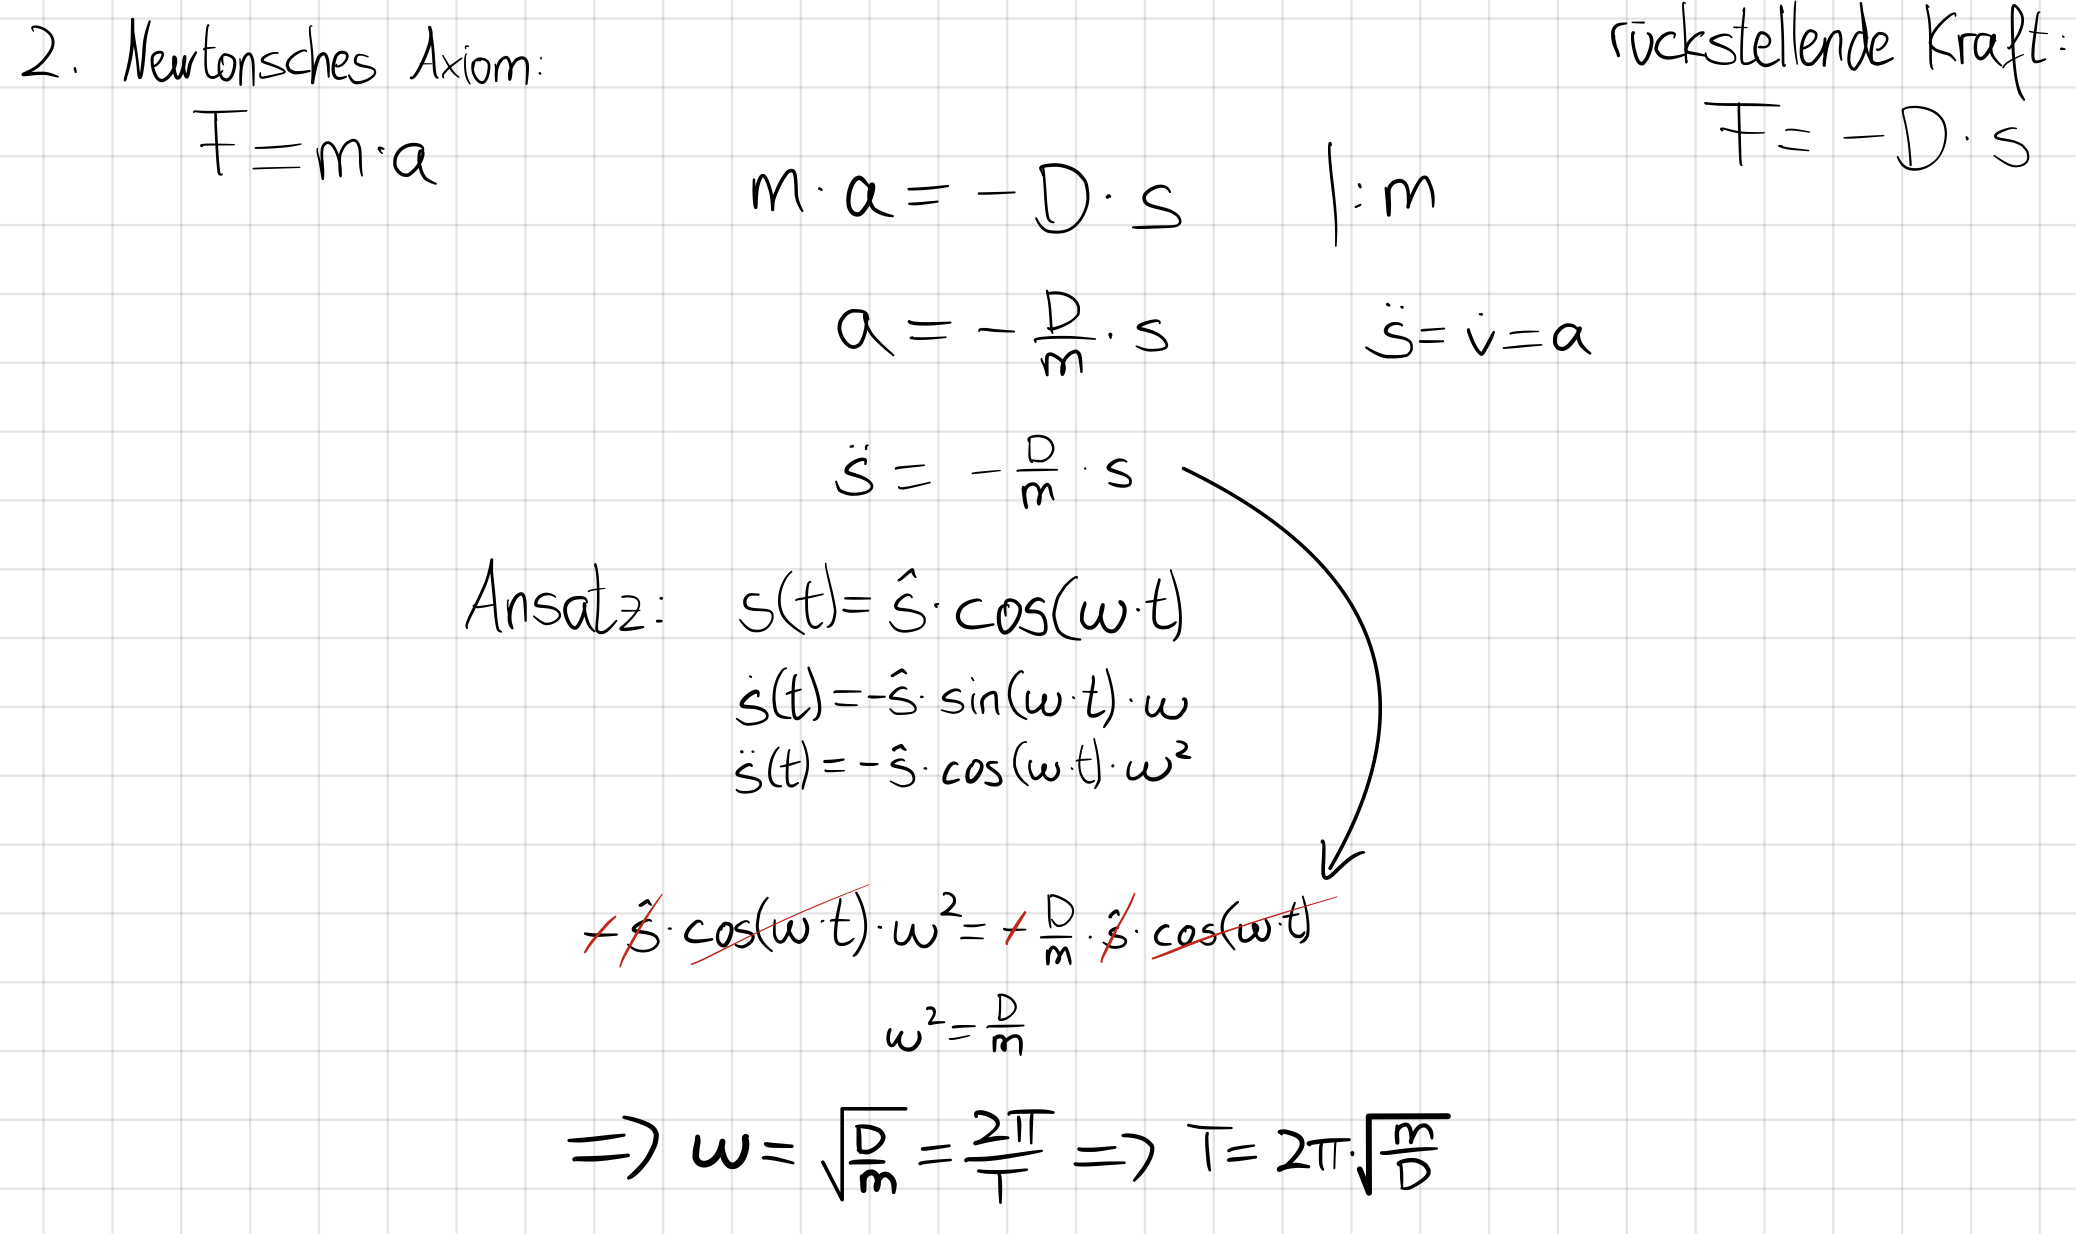 2. Newtonsches Axiom:
rückstellende Kraft:
F = m · a
F = - D · s
m · a = - D · s |: m
a = - D/m · s s̈ = v̇ = a
s̈ = - D/m · s
Ansatz: s(t) = ŝ · cos(ω · t)
ṡ(t) = -ŝ · sin(ω · t) · ω
s̈(t) = -ŝ · cos(ω · t) · ω²
- ŝ · cos(ω · t) · ω² = - D/m · ŝ · cos(ω · t)
ω² = D/m
=> ω = √(D/m) = 2π/T => T = 2π · √(m/D)